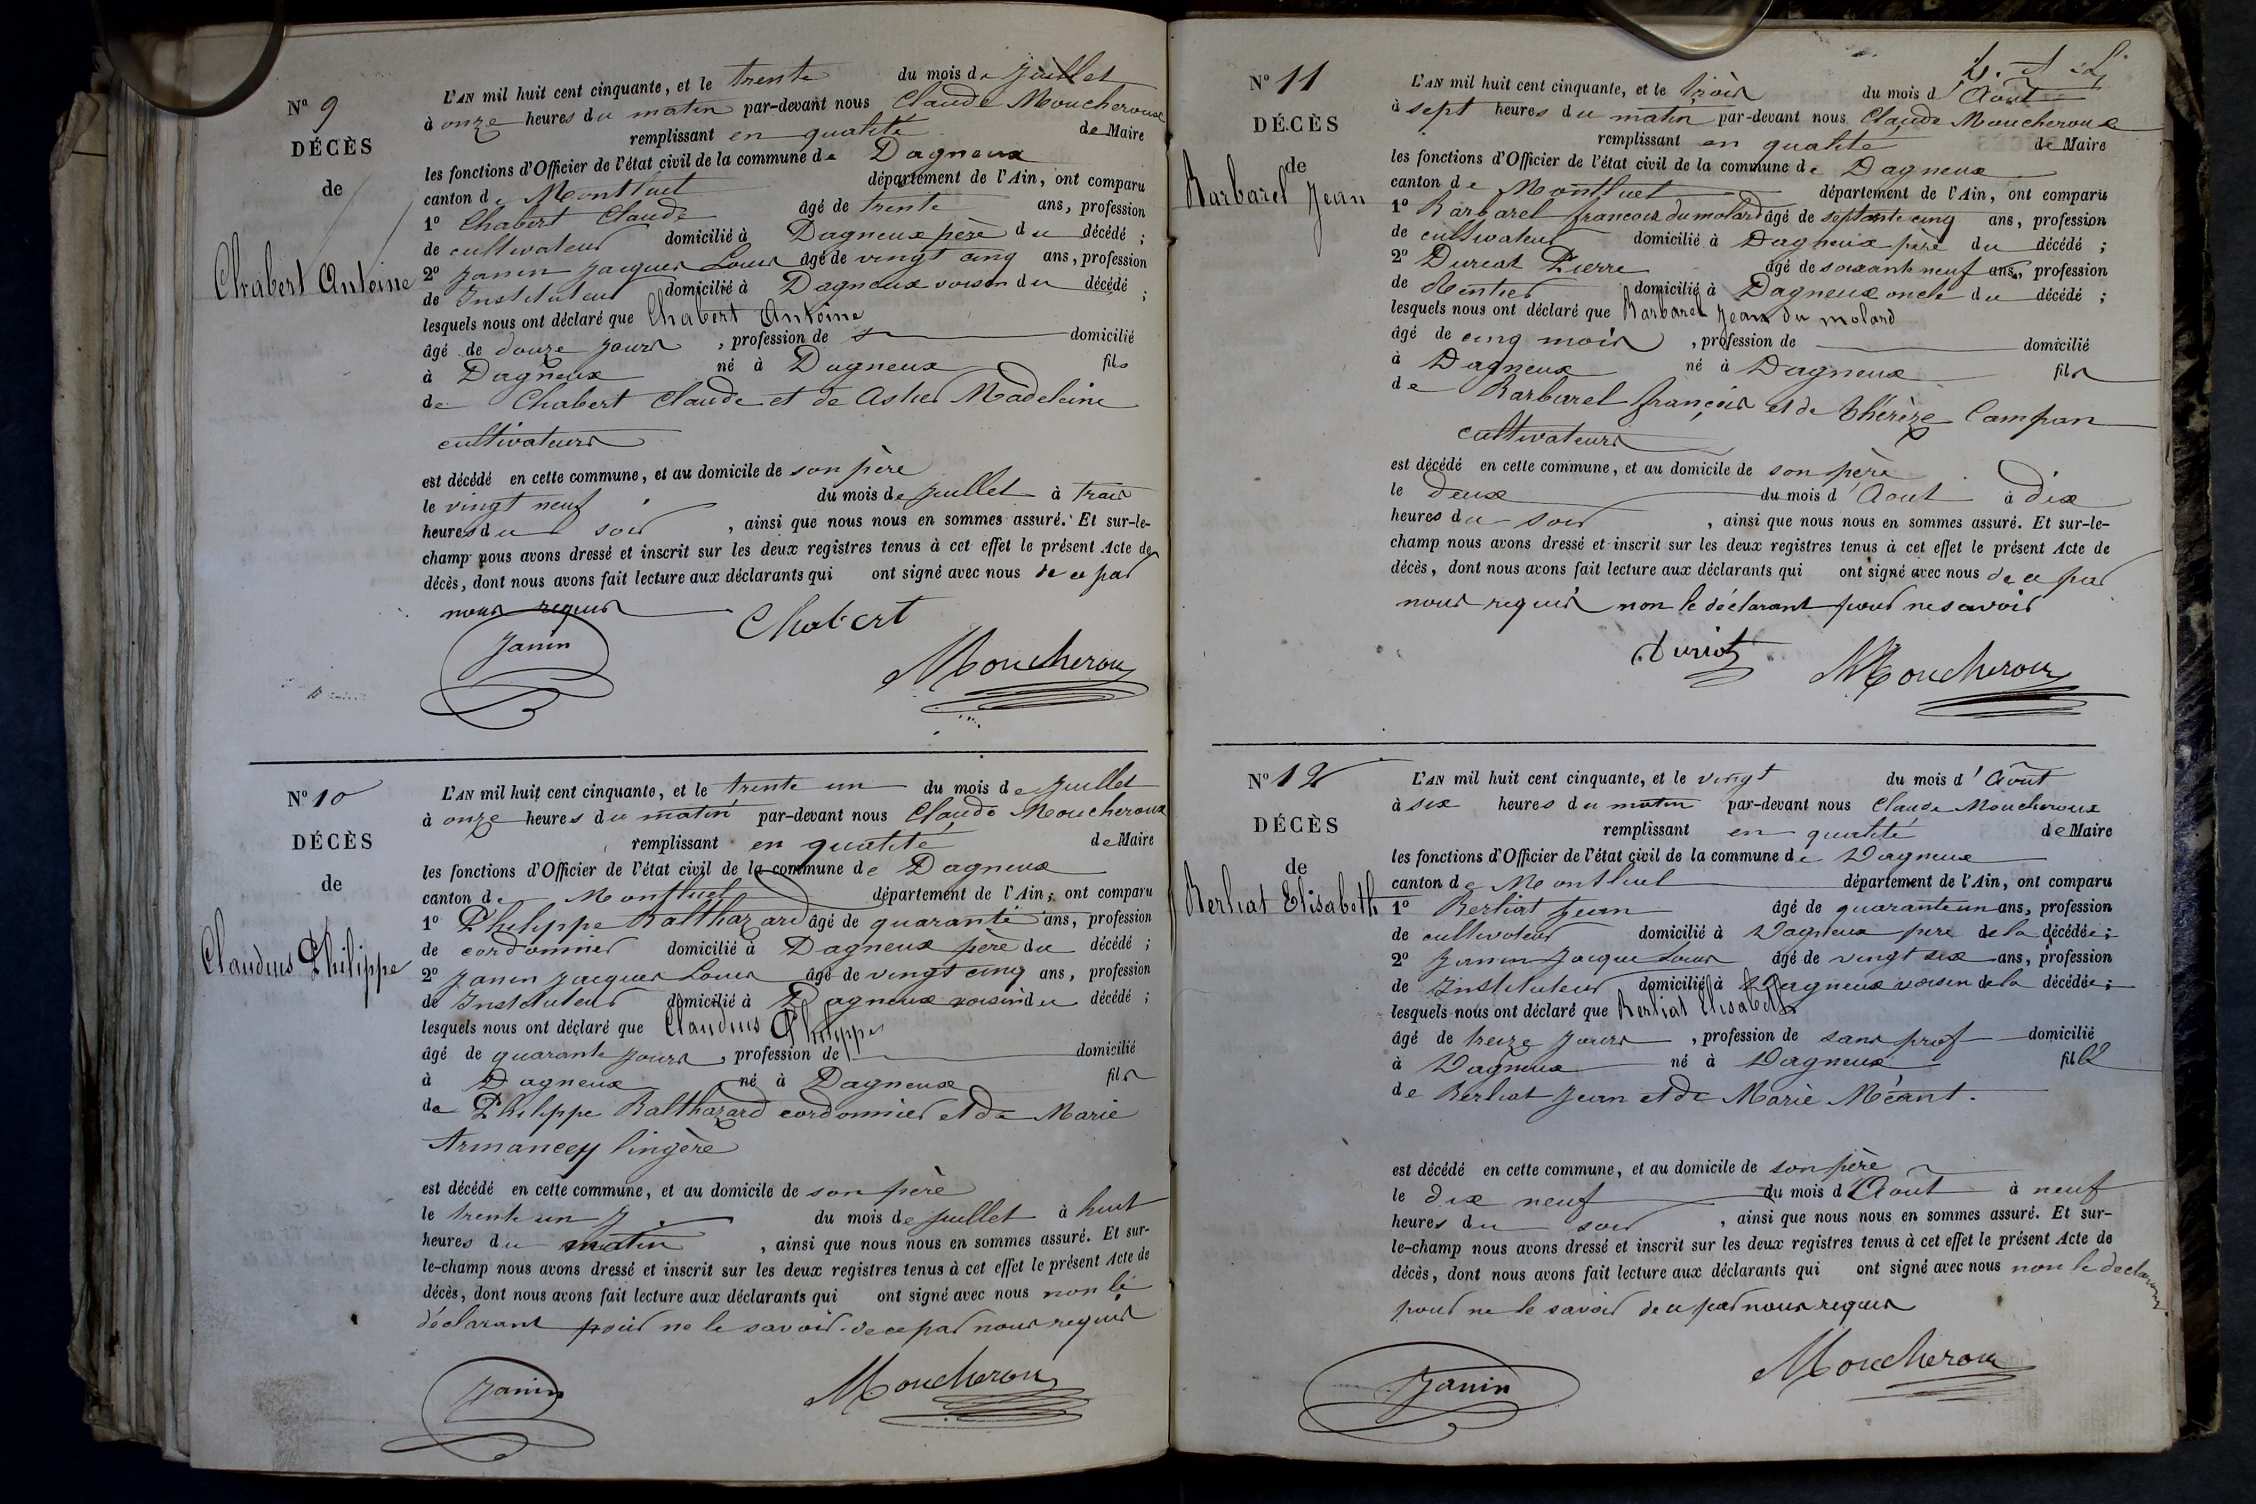 N° 9
DÉCÈS
de
Chabert Antoine
L'AN mil huit cent cinquante, et le trente du mois de Juillet
à onze heures du matin par-devant nous Claude Moucheroux
remplissant en qualité de Maire
les fonctions d'Officier de l'état civil de la commune de Dagneux
canton de Montluel département de l'Ain, ont comparu
1° Chabert Claude âgé de trente ans, profession
de cultivateur domicilié à Dagneux père du décédé ;
2° Janin Jacques Louis âgé de vingt cinq ans, profession
de Instituteur domicilié à Dagneux voisin du décédé ;
lesquels nous ont déclaré que Chabert Antoine
âgé de douze jours , profession de domicilié
à Dagneux né à Dagneux fils
de Chabert Claude et de Madeleine
cultivateurs
est décédé en cette commune, et au domicile de son père
le vingt neuf du mois de Juillet à trois
heures du soir , ainsi que nous nous en sommes assuré. Et sur-le-
champ nous avons dressé et inscrit sur les deux registres tenus à cet effet le présent Acte de
décès, dont nous avons fait lecture aux déclarants qui ont signé avec nous de ce par
nous requis
Chabert
Janin
Moucheroux
N° 10
DÉCÈS
de
Claudius Philippe
L'AN mil huit cent cinquante, et le trente un du mois de Juillet
à onze heures du matin par-devant nous Claude Moucheroux
remplissant en qualité de Maire
les fonctions d'Officier de l'état civil de la commune de Dagneux
canton de Montluel département de l'Ain, ont comparu
1° Philippe Balthazard âgé de quarante ans, profession
de cordonnier domicilié à Dagneux père du décédé ;
2° Janin Jacques Louis âgé de vingt cinq ans, profession
de Instituteur domicilié à Dagneux voisin du décédé ;
lesquels nous ont déclaré que Claudius Philippe
âgé de quarante jours , profession de domicilié
à Dagneux né à Dagneux fils
de Philippe Balthazard cordonnier et de Marie
Armancey lingère
est décédé en cette commune, et au domicile de son père
le trente un du mois de Juillet à huit
heures du matin , ainsi que nous nous en sommes assuré. Et sur-
le-champ nous avons dressé et inscrit sur les deux registres tenus à cet effet le présent Acte de
décès, dont nous avons fait lecture aux déclarants qui ont signé avec nous non le
déclarant pour ne le savoir de ce par nous requis
Janin
Moucheroux
N° 11
DÉCÈS
de
Barbarel Jean
L'AN mil huit cent cinquante, et le trois du mois d'Août
à sept heures du matin par-devant nous Claude Moucheroux
remplissant en qualité de Maire
les fonctions d'Officier de l'état civil de la commune de Dagneux
canton de Montluel département de l'Ain, ont comparu
1° Barbarel françois du molard âgé de septante cinq ans, profession
de cultivateur domicilié à Dagneux père du décédé ;
2° Duriat Pierre âgé de soixante neuf ans, profession
de Rentier domicilié à Dagneux oncle du décédé ;
lesquels nous ont déclaré que Barbarel Jean du molard
âgé de cinq mois , profession de domicilié
à Dagneux né à Dagneux fils
de Barbarel françois et de thérèze Campan
cultivateurs
est décédé en cette commune, et au domicile de son père
le deux du mois d'Aout à dix
heures du soir , ainsi que nous nous en sommes assuré. Et sur-le-
champ nous avons dressé et inscrit sur les deux registres tenus à cet effet le présent Acte de
décès, dont nous avons fait lecture aux déclarants qui ont signé avec nous de ce par
nous requis non le déclarant pour ne savoir
Duriat
Moucheroux
N° 12
DÉCÈS
de
Berliat Elisabeth
L'AN mil huit cent cinquante, et le vingt du mois d'Août
à six heures du matin par-devant nous Claude Moucheroux
remplissant en qualité de Maire
les fonctions d'Officier de l'état civil de la commune de Dagneux
canton de Montluel département de l'Ain, ont comparu
1° Berliat Jean âgé de quarante un ans, profession
de cultivateur domicilié à Dagneux père de la décédée ;
2° Janin Jacque Louis âgé de vingt six ans, profession
de Instituteur domicilié à Dagneux voisin de la décédée ;
lesquels nous ont déclaré que Berliat Elisabeth
âgé de treize jours , profession de sans prof domicilié
à Dagneux né à Dagneux fille
de Berliat Jean et de Marie Méant.
est décédé en cette commune, et au domicile de son père
le dix neuf du mois d'Août à neuf
heures du soir , ainsi que nous nous en sommes assuré. Et sur-
le-champ nous avons dressé et inscrit sur les deux registres tenus à cet effet le présent Acte de
décès, dont nous avons fait lecture aux déclarants qui ont signé avec nous non le déclarant
pour ne le savoir de ce par nous requis
Janin
Moucheroux